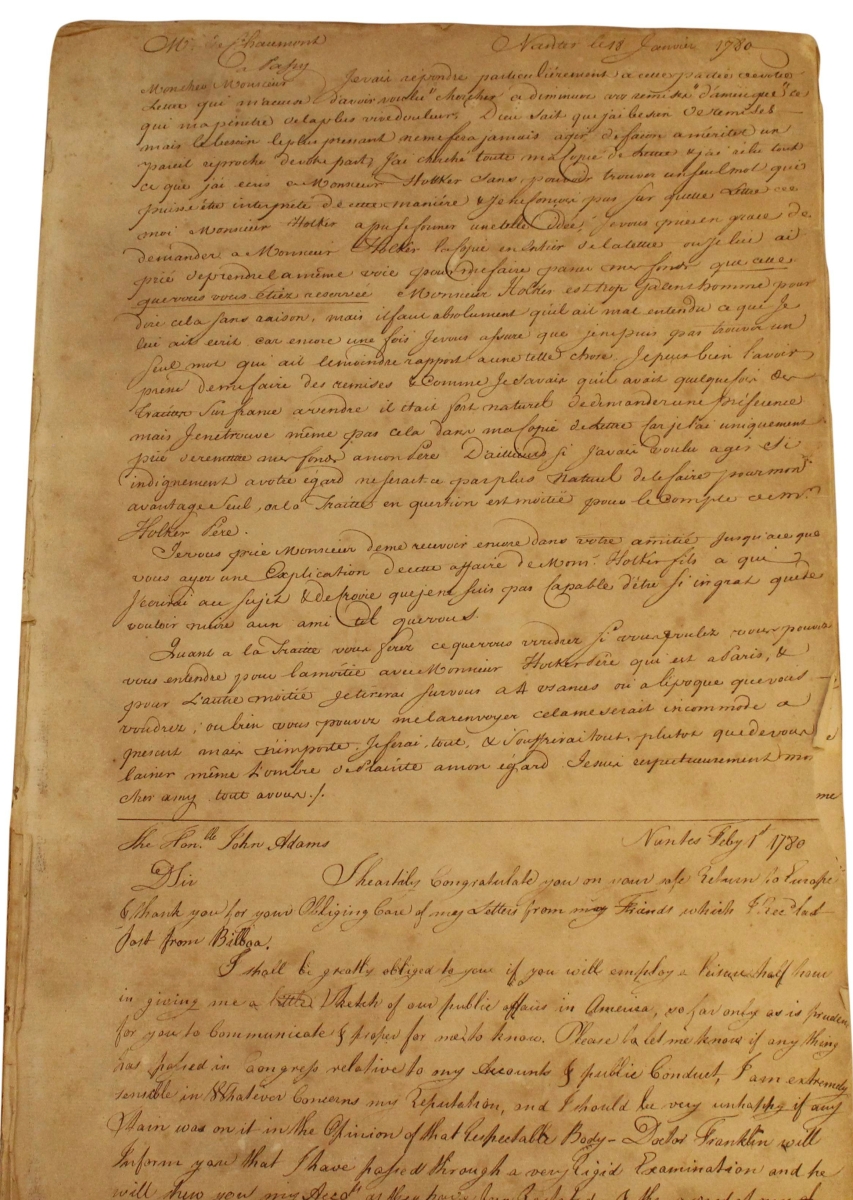 Mr. de Chaumont Nantes le 18 Janvier 1780
a Passy
Mon cher Monsieur Je vais répondre particulièrement a cette partie de votre
Lettre qui m'accuse d'avoir voulu "chercher a diminuer vos remises d'amerique" ce
qui m'a pénétré de la plus vive douleur. Dieu sait que j'ai besoin de remises
mais le besoin le plus pressant ne me fera jamais agir de façon a mériter un
pareil reproche de votre part, J'ai cherché toute ma Copie de Lettre & j'ai relu tout
ce que j'ai ecris a Monsieur Holker sans pouvoir trouver un seul mot qui
puisse être interprété de cette manière & je ne conçois pas sur quelle Lettre de
moi Monsieur Holker a pu se former une telle Idée, je vous prie en grace de
demander a Monsieur Holker la Copie en entier de la lettre ou je lui ai
prié de prendre la même voie pour me faire passer mes fonds que celle
que vous vous étiez reservée Monsieur Holker est trop galent homme pour
dire cela sans raison, mais il faut absolument qu'il ait mal entendu ce que Je
lui ait ecrit car encore une fois Je vous assure que je ne puis pas trouver un
seul mot qui ait le moindre rapport a une telle chose. Je peus bien l'avoir
prié de me faire des remises & comme Je savais qu'il avait quelquefois des
traittes sur france a vendre il etait fort naturel de demander une préférence
mais Je ne trouve même pas cela dans ma Copie de Lettre car je l'ai uniquement
prié de remettre mes fonds a mon Père D'ailleurs si j'avais voulu agir si
indignement a votre égard ne serait ce pas plus naturel de le faire pour mon
avantage seul, or la Traitte en question est moitié pour le Compte de Mr.
Holker Père.
Je vous prie Monsieur de me recevoir encore dans votre amitié Jusqu'a ce que
vous ayez une Explication de cette affaire de Monsr. Holker fils a qui
J'ecrirai au sujet & de croire que je ne suis pas Capable d'être si ingrat que de
vouloir nuire a un ami tel que vous.
Quant a la Traitte vous ferez ce que vous voudrez si vous voulez vous pouvez
vous entendre pour la moitié avec Monsieur Holker Père qui est a Paris, &
pour L'autre moitié Je tirerai sur vous a 4 usances ou a l'époque que vous
voudrez; ou bien vous pouvez me la renvoyer cela me serait incommode a
present mais n'importe. Je ferai tout, & souffrirai tout, plutot que de vous
laisser même L'ombre de Plainte a mon egard Je suis respectueusement mon
cher amy tout a vous ./.
me
The Honble. John Adams Nantes Feby 1st 1780
D Sir I heartily Congratulate you on your safe Return to Europe
& thank you for your Obliging Care of my Letters from my Friends which I Recd last
Post from Bilboa.
I shall be greatly obliged to you if you will employ a leisure half hour
in giving me a little Sketch of our public affairs in America, so far only as is prudent
for you to Communicate & proper for me to know. Please to let me know if any thing
has passed in Congress relative to my Accounts & public Conduct, I am extremely
sensible in Whatever Concerns my Reputation, and I should be very unhappy if any
Stain was on it in the Opinion of that respectable Body – Doctor Franklin will
Inform you that I have passed through a very rigid Examination and he
will shew you my Accots as they have